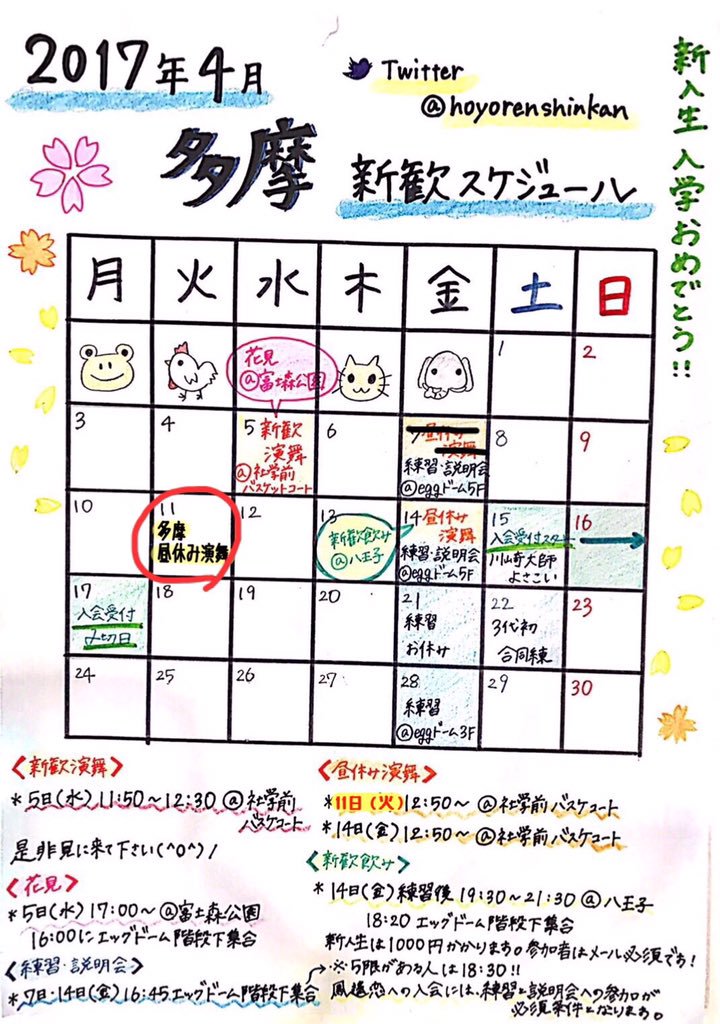 2017年4月
Twitter
@hoyorenshinkan
多摩 新歓スケジュール
新入生入学おめでとう!!
月 火 水 木 金 土 日
花見
@富士森公園
1
2
3
4
5 新歓
演舞
@社学前
バスケットコート
6
7 昼休み
演舞
練習・説明会
@eggドーム5F
8
9
10
11
多摩
昼休み演舞
12
13
新歓飲み
@八王子
14 昼休み
演舞
練習・説明会
@eggドーム5F
15
入会受付スタート
川崎大師
よさこい
16
17
入会受付
〆切日
18
19
20
21
練習
お休み
22
3代初
合同練
23
24
25
26
27
28
練習
@eggドーム3F
29
30
<新歓演舞>
*5日(水) 11:50~12:30 @社学前
バスケコート
是非見に来て下さい(^o^)/
<花見>
*5日(水) 17:00~@富士森公園
16:00にエッグドーム階段下集合
<練習・説明会>
*7日・14日(金) 16:45エッグドーム階段下集合
<昼休み演舞>
*11日(火) 12:50~ @社学前バスケコート
*14日(金) 12:50~ @社学前バスケコート
<新歓飲み>
*14日(金)練習後 19:30~21:30 @八王子
18:20 エッグドーム階段下集合
新入生は1000円かかります。参加者はメール必須です!
※5限がある人は18:30!!
鳳遙恋への入会には、練習と説明会への参加が
必須条件となります。